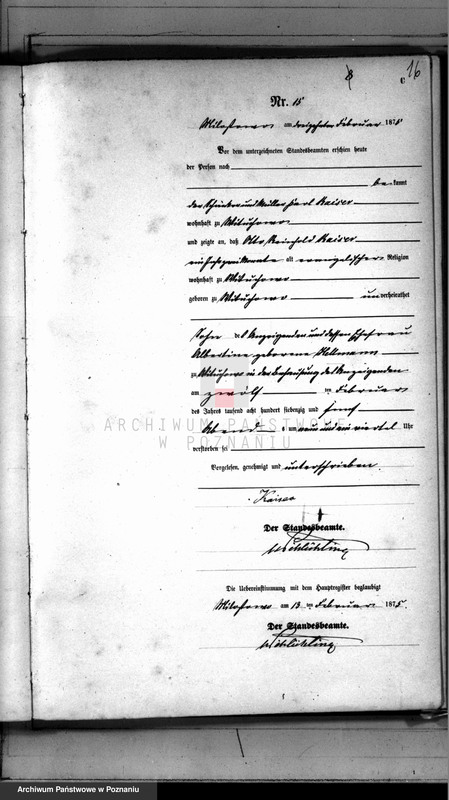 8
C 16
Nr. 15
Milostowo am dreizehnten Februar 1875
Vor dem unterzeichneten Standesbeamten erschien heute
der Person nach
be kannt
der und Müller Karl Kaiser
wohnhaft zu Mituchowo
und zeigte an, daß Otto Reinhold Kaiser
alt evangelischer Religion
wohnhaft zu Mituchowo
geboren zu Mituchowo un verheirathet
Sohn des Anzeigenden und dessen Ehefrau
Albertine geborene Hellmann
zu Mituchowo in der Behausung des Anzeigenden
am zwölf ten Februar
des Jahres tausend acht hundert siebenzig und fünf
Abends um neun und ein viertel Uhr
verstorben sei
Vorgelesen, genehmigt und unterschrieben.
Kaiser
Der Standesbeamte.
Die Uebereinstimmung mit dem Hauptregister beglaubigt
Milostowo am 13 ten Februar 1875.
Der Standesbeamte.
ARCHIWUM PAŃSTWOWE
W POZNANIU
Archiwum Państwowe w Poznaniu